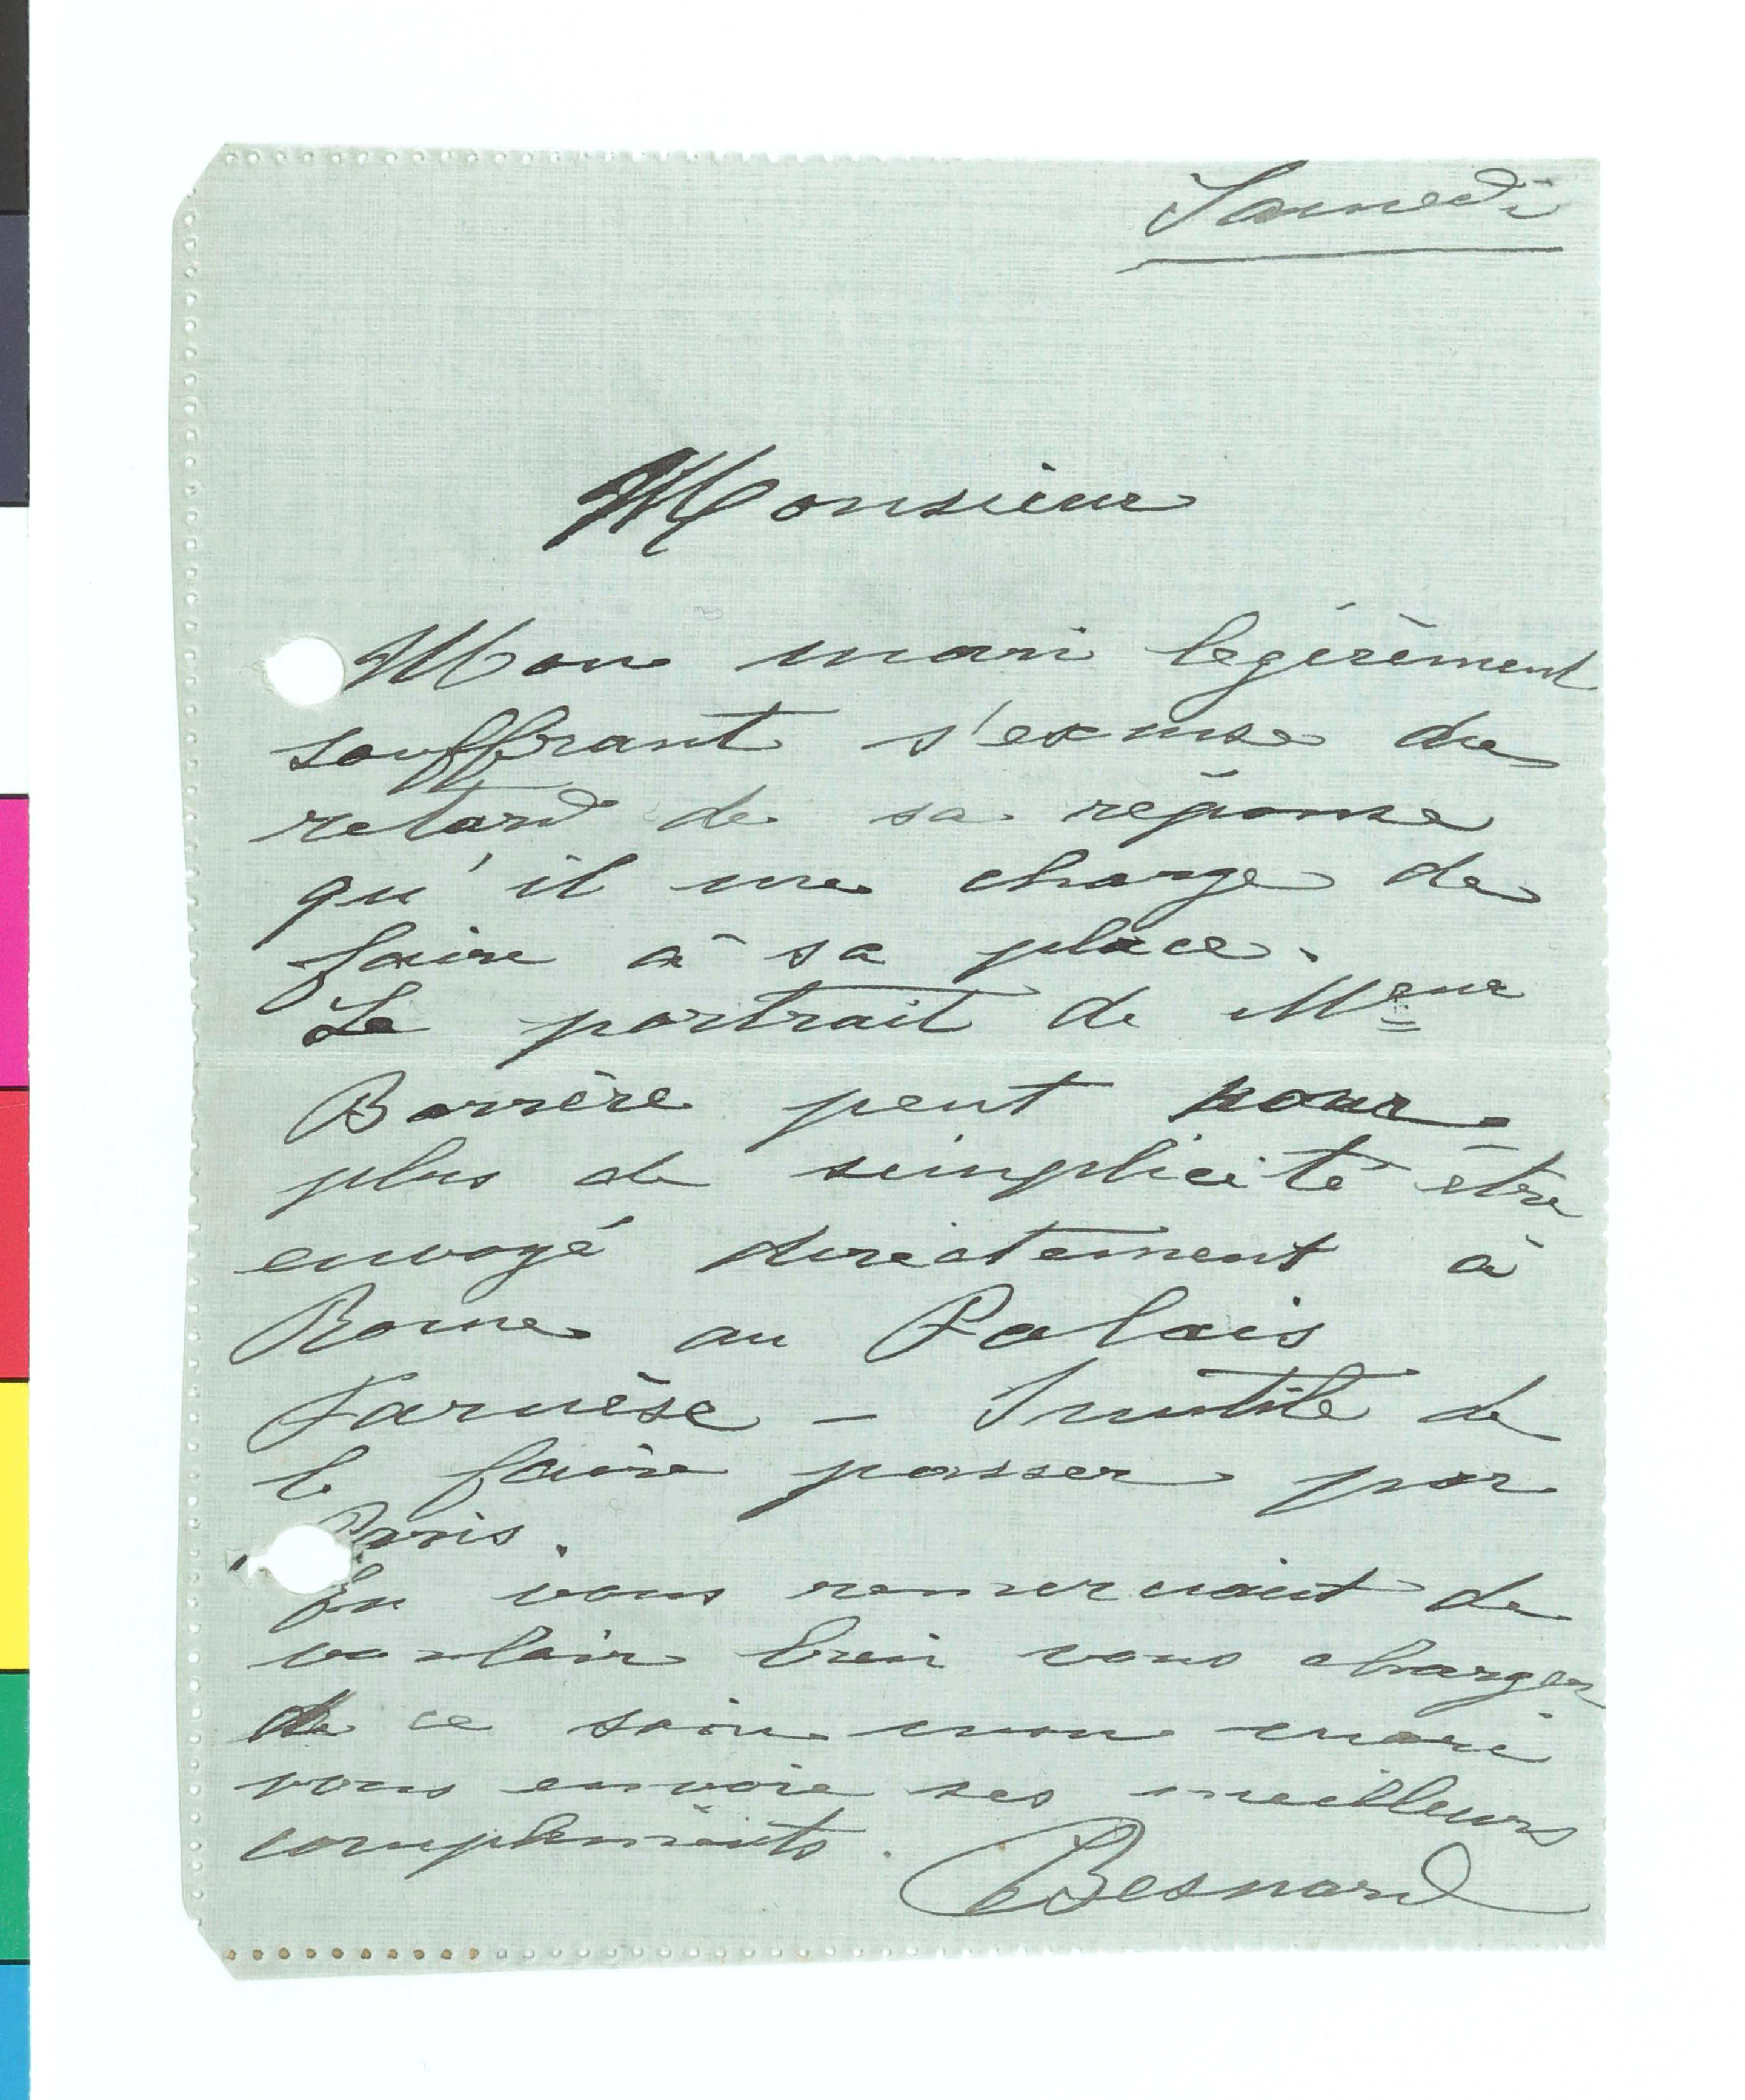 Samedi
Monsieur
Mon mari légèrement
souffrant s'excuse du
retard de sa réponse
qu'il me charge de
faire à sa place.
Le portrait de Mme
Barrère peut pour
plus de simplicité être
envoyé directement à
Rome au Palais
Farnèse – Inutile de
le faire passer par
Paris.
En vous remerciant de
vouloir bien vous charger
de ce soin mon mari
vous envoie ses meilleurs
compliments.
Besnard